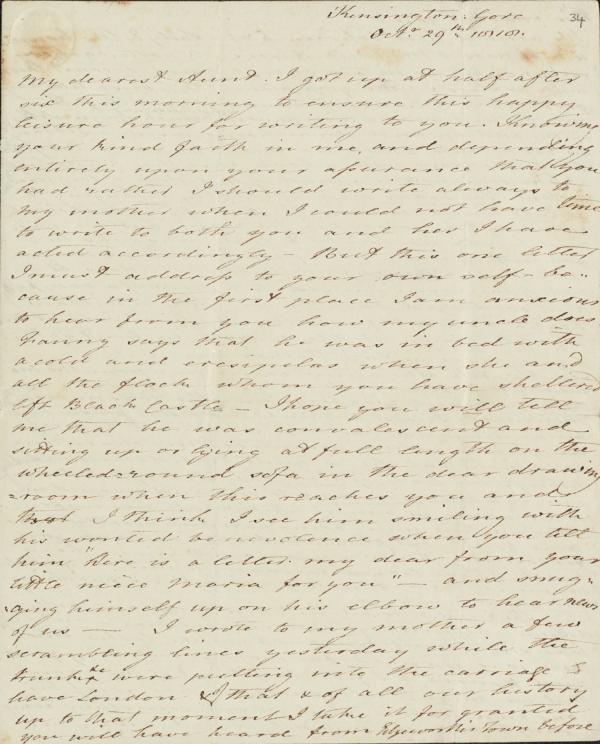 Kensington: Gore 34
Octr 29th 1818.
My dearest Aunt. I got up at half after
six this morning to ensure this happy
leisure hour for writing to you. Knowing
your kind faith in me, and depending
entirely upon your assurance that you
had rather I should write always to
my mother when I could not have time
to write to both you and her I have
acted accordingly - But this one letter
I must address to your own self - be-
cause in the first place I am anxious
to hear from you how my uncle does
Fanny says that he was in bed with
a cold and eresipelas when she and
all the flock whom you have sheltered
left Black Castle - I hope you will tell
me that he was convalescent and
sitting up or lying at full length on the
wheeled=round sofa in the dear drawing
=room when this reaches you and
that I think I see him smiling with
his wonted benevolence when you tell
him "Here is a letter my dear from your
little niece Maria for you" - and smug-
ging himself up on his elbow to hear news
of us — I wrote to my mother a few
scrambling lines yesterday while the
trunks &c were putting into the carriage
leave London & that & of all our history
up to that moment I take it for granted
you will have heard from Edgeworths Town before